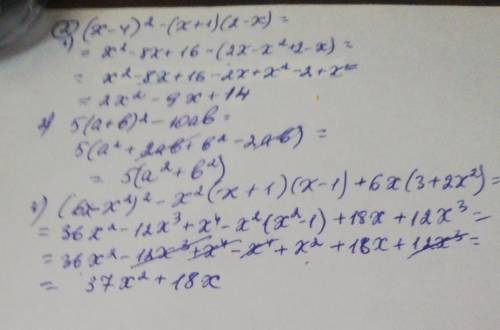 ② (x-4)² - (x+1)(2-x) =
1) = x² - 8x + 16 - (2x - x² + 2 - x) =
= x² - 8x + 16 - 2x + x² - 2 + x =
= 2x² - 9x + 14
2) 5(a+b)² - 10ab =
5(a² + 2ab + b² - 2ab) =
= 5(a² + b²)
3) (6x - x²)² - x²(x+1)(x-1) + 6x(3+2x²) =
= 36x² - 12x³ + x⁴ - x²(x²-1) + 18x + 12x³ =
= 36x² - 12x³ + x⁴ - x⁴ + x² + 18x + 12x³ =
= 37x² + 18x